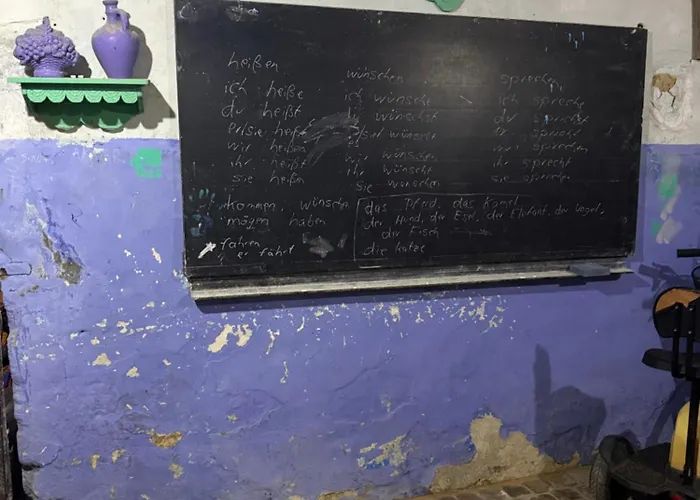 heißen
ich heiße
du heißt
er/sie heißt
wir heißen
ihr heißt
sie heißen
wünschen
ich wünsche
du wünschst
er/sie wünscht
wir wünschen
ihr wünscht
sie wünschen
sprechen
ich spreche
du
er spricht
wir sprechen
ihr sprecht
sie sprechen
kommen, wünsche
mögen haben
fahren
er fährt
das Pferd, das Kamel
der Hund, der Esel, der Elefant, der Vogel,
der Fisch
die Katze